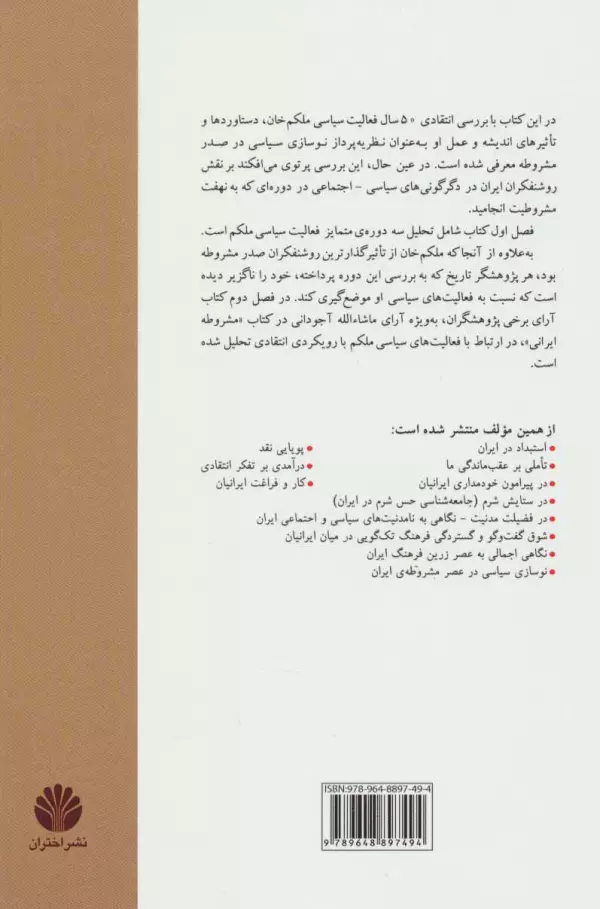 در این کتاب با بررسی انتقادی ۵۰ سال فعالیت سیاسی ملکم‌خان، دستاوردها و
تأثیرهای اندیشه و عمل او به‌عنوان نظریه‌پرداز نوسازی سیاسی در صدر
مشروطه معرفی شده است. در عین حال، این بررسی پرتوی می‌افکند بر نقش
روشنفکران ایران در دگرگونی‌های سیاسی - اجتماعی در دوره‌ای که به نهفت
مشروطیت انجامید.
فصل اول کتاب شامل تحلیل سه دوره‌ی متمایز فعالیت سیاسی ملکم است.
به‌علاوه از آنجا که ملکم‌خان از تأثیرگذارترین روشنفکران صدر مشروطه
بود، هر پژوهشگر تاریخ که به بررسی این دوره پرداخته، خود را ناگزیر دیده
است که نسبت به فعالیت‌های سیاسی او موضع‌گیری کند. در فصل دوم کتاب
آرای برخی پژوهشگران، به‌ویژه آرای ماشاءالله آجودانی در کتاب «مشروطه
ایرانی»، در ارتباط با فعالیت‌های سیاسی ملکم با رویکردی انتقادی تحلیل شده
است.
از همین مؤلف منتشر شده است:
• استبداد در ایران • پویایی نقد
• تأملی بر عقب‌ماندگی ما • درآمدی بر تفکر انتقادی
• در پیرامون خودمداری ایرانیان • کار و فراغت ایرانیان
• در ستایش شرم (جامعه‌شناسی حس شرم در ایران)
• در فضیلت مدنیت - نگاهی به نامدنیت‌های سیاسی و اجتماعی ایران
• شوق گفت‌وگو و گستردگی فرهنگ تک‌گویی در میان ایرانیان
• نگاهی اجمالی به عصر زرین فرهنگ ایران
• نوسازی سیاسی در عصر مشروطه‌ی ایران
ISBN:978-964-8897-49-4
9 789648 897494
نشر اختران